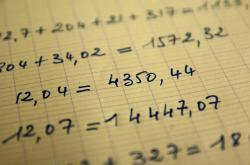 2,7 + 204 + 21 + 317 = 11
304 + 34,02 = 1572,32
12,04 = 4350,44
12,07 = 14447,07
+ 327 = 18